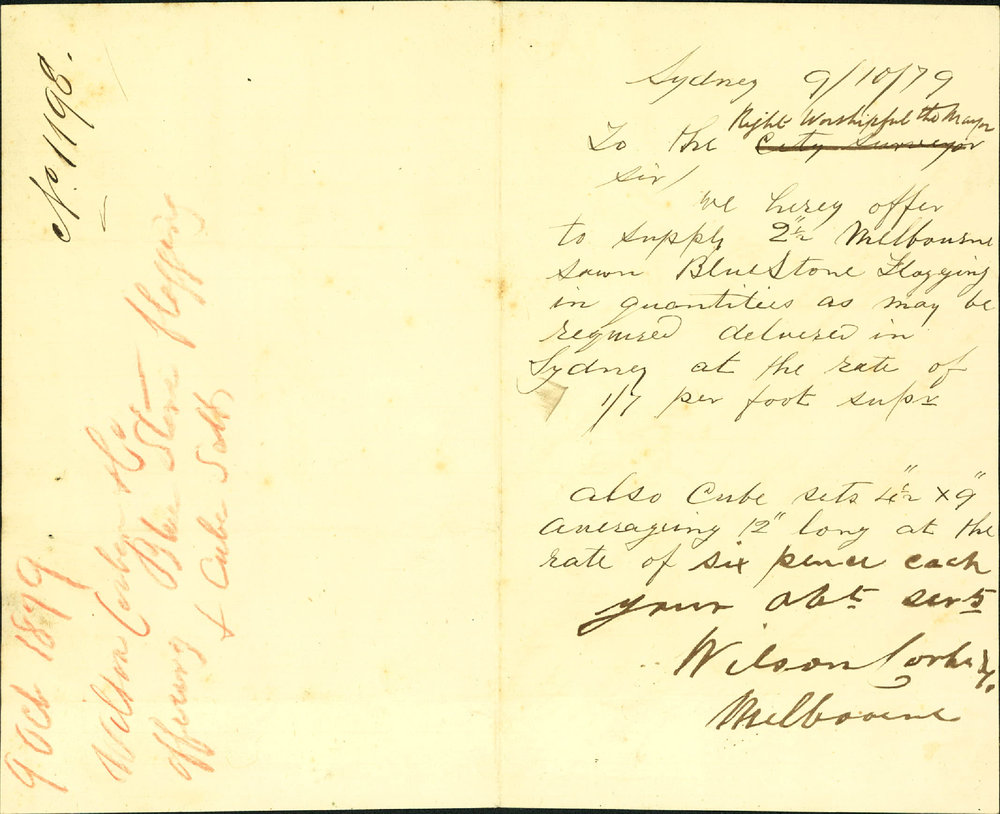 No. 1198.
9 Oct 1879
Wilson Corben & Co
offering Blue Stone flagging
& Cube Setts
Sydney 9/10/79
Right Worshipful the Mayor
To the City Surveyor
Sir/
We herey offer
to supply 2"½ Melbourne
Sawn BlueStone Flagging
in quantities as may be
required delivered in
Sydney at the rate of
1/7 per foot supr
also Cube sets 4"½ x 9"
averageing 12" long at the
rate of six pence each
your obt servts
Wilson Corben & Co.
Melbourne